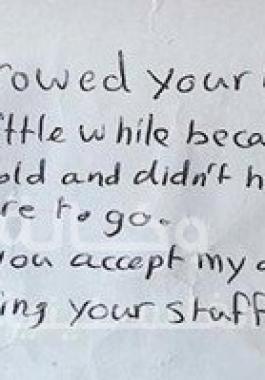 rowed your
ttle while beca
old and didn't h
re to go.
you accept my a
ing your stuff